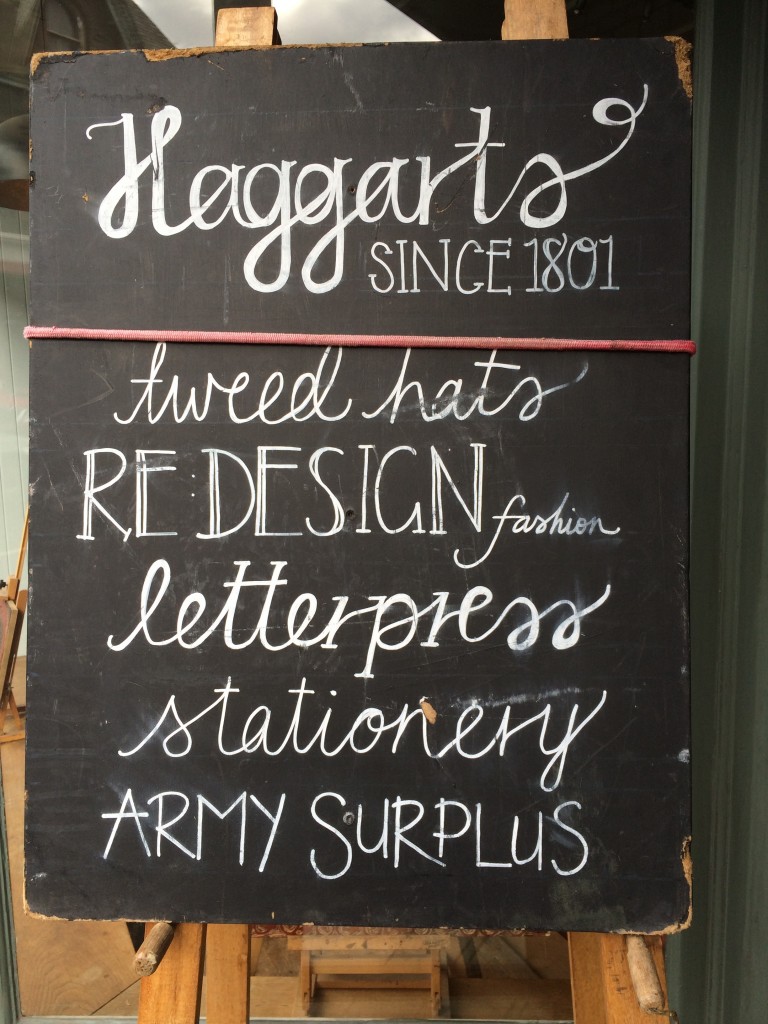 Haggarts
SINCE 1801
tweed hats
RE:DESIGN fashion
letterpress
stationery
ARMY SURPLUS